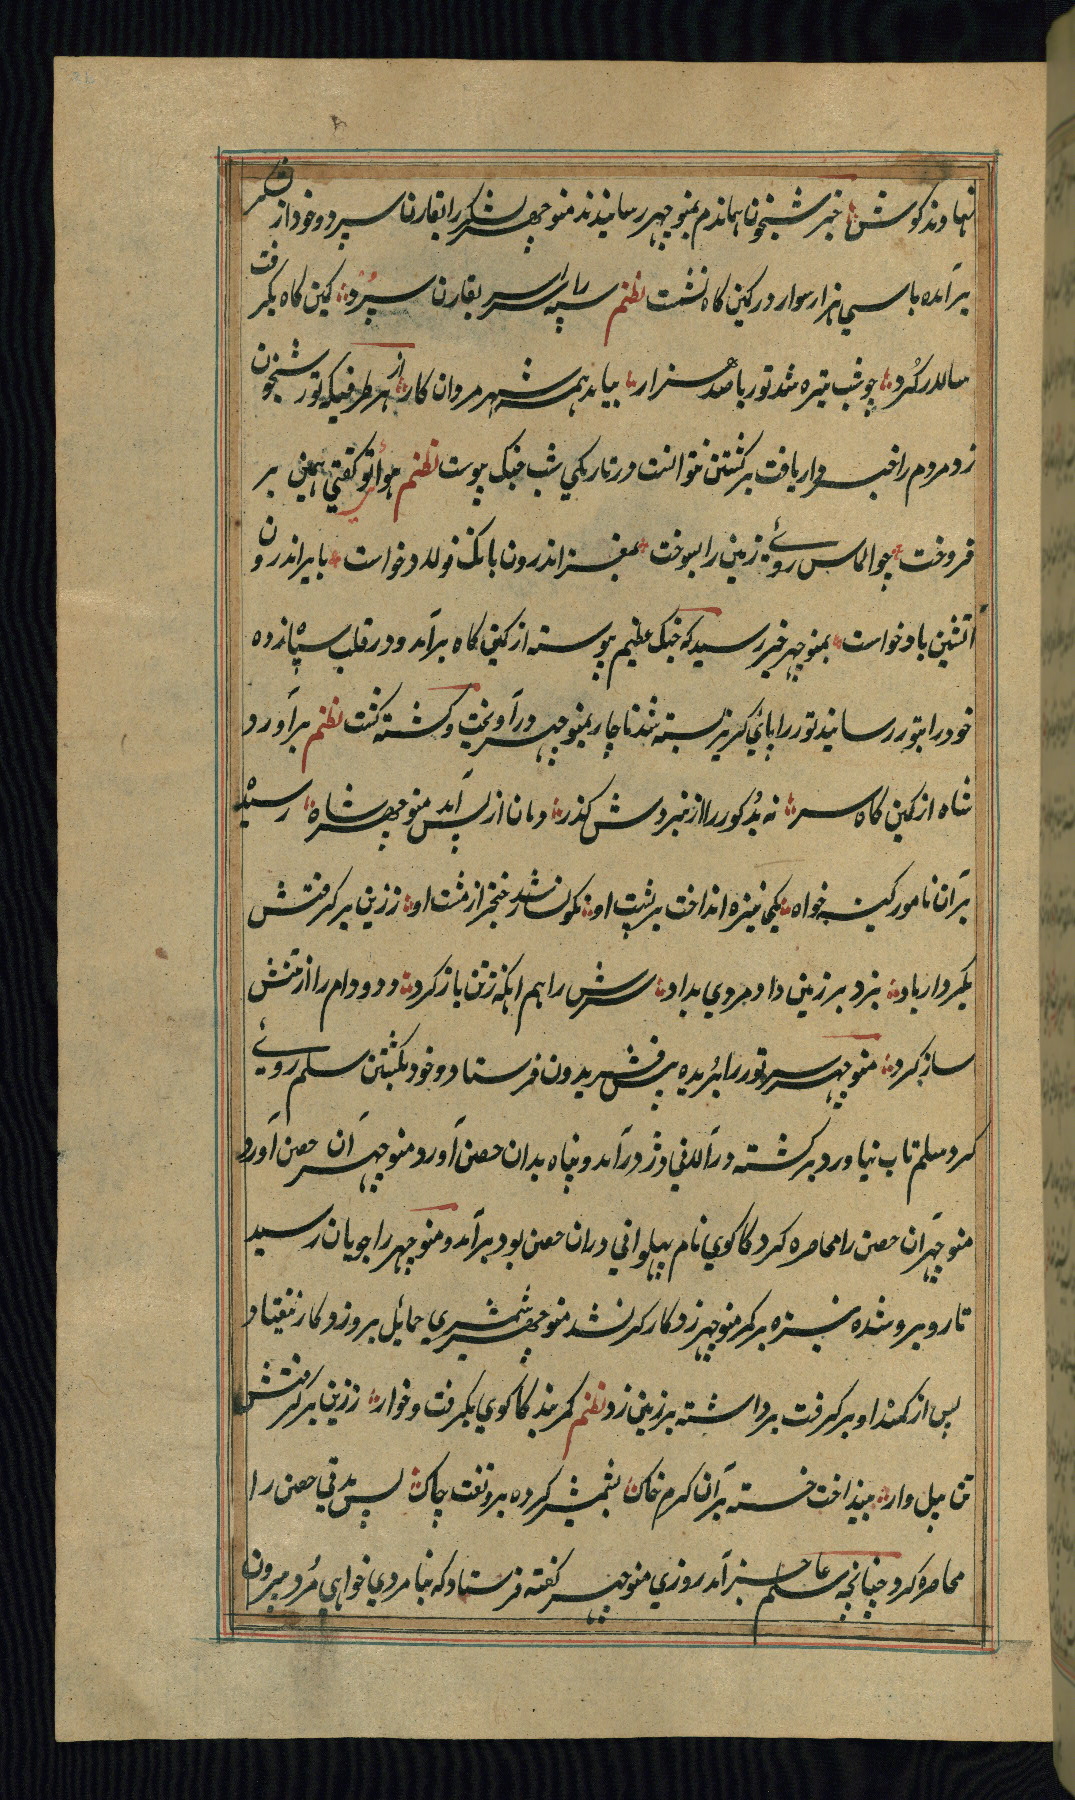 نهادند گوش خبر شبیخون هماندم بمنوچهر رسانیدند منوچهر لشکر را بقارن سپرد و خود از لشکر
برآمده با سي هزار سوار در کمین کاه نشت نظم سپه را سراسر بقارن سپرد کمین کاه بگرفت
سالار گرد چو شب تیره شد تور با صد هزار بیامد همه شهر مردان کار از هر طرفیکه تور شبخون
زد مردم را خبردار یافت برکشتن نتوانست در تاریکي شب جنک پیوست نظم هوا تو گفتي همین بر
فروخت چو الماس روئے زمین را بسوخت بمغز اندرون بانک فولاد خواست بابر اندرون
آتشین باد خواست بمنوچهر خبر رسید که جنک عظیم پیوسته از کمین کاه برآمد و در قلب سپاه زده
خود را بتور رسانید تور را پاي گریز بسته شد ناچار بمنوچهر درآویخت و کشته گشت نظم برآورد
شاه از کمین کاه سر نه بد تور را از نبردش گذر دمان از پس آمد منوچهر شاه رسید
بر آن نامور کینه خواه یکي نیزه انداخت بر پشت او نگونسار شد خنجر از مشت او ز زین برگرفتش
بکردار باد بزد بر زمین داد مردي بداد سرش را هم آنکه ز تن باز کرد دد و دام را از تنش
ساز کرد منوچهر سر تور را بریده پیش فریدون فرستاد و خود بکشتن سلم روئے
کرد سلم تاب نیاورد برکشته در آلاني دژ درآمد و پناه بدان حصن آورد منوچهر آن حصن آورد
منوچهر آن حصن را محاصره کرد کاکوي نام پهلواني در آن حصن بود برآمد و منوچهر را جویان رسید
تا روبرو شده نیزه بر کمر منوچهر زد کارگر نشد منوچهر شمشیري حمائل برو زد کار نیفتاد
پس از کمند او برگرفت برداشته بر زمین زد نظم کمربند کاکوي بگرفت و خوار ز زین برگرفتش
تن پیل وار بینداخت خسته بر آن گرم خاک بشمشیر کرده برو تفت چاک پس مدتي حصن را
محاصره کرد چنانچه سلم عاجز آمد روزي منوچهر گفته فرستاد که بنا مردي خواهي مُرد بیرون